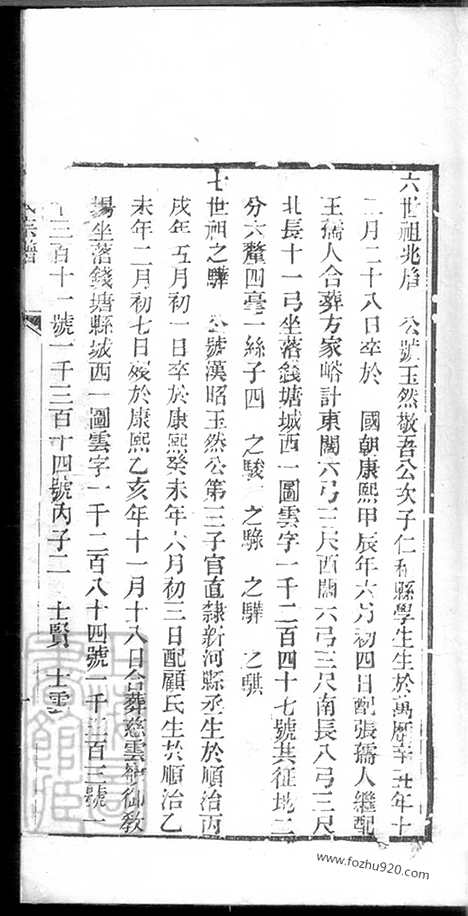 六世祖兆 公號玉然敬吾公次子仁和縣學生生於萬歷辛丑年十
二月二十八日卒於 國朝康熙甲辰年六月初四日配張孺人繼配
王孺人合葬方家峪計東闊六弓三尺西闊六弓三尺南長八弓三尺
北長十一弓坐落錢塘城西一圖雲字一千二百四十七號共征地二
分六釐四毫一絲子四 之駿 之騄 之驊 之騏
七世祖之驊 公號漢昭玉然公第三子官直隸新河縣丞生於順治丙
戌年五月初一日卒於康熙癸未年六月初三日配顧氏生於順治乙
未年二月初七日歿於康熙乙亥年十一月十八日合葬慈雲嶺御教
場坐落錢塘縣城西一圖雲字一千二百八十四號一千三百三號一
千三百十一號一千三百十四號內子二 士賢 士雲
宗譜
www.fozhu920.com